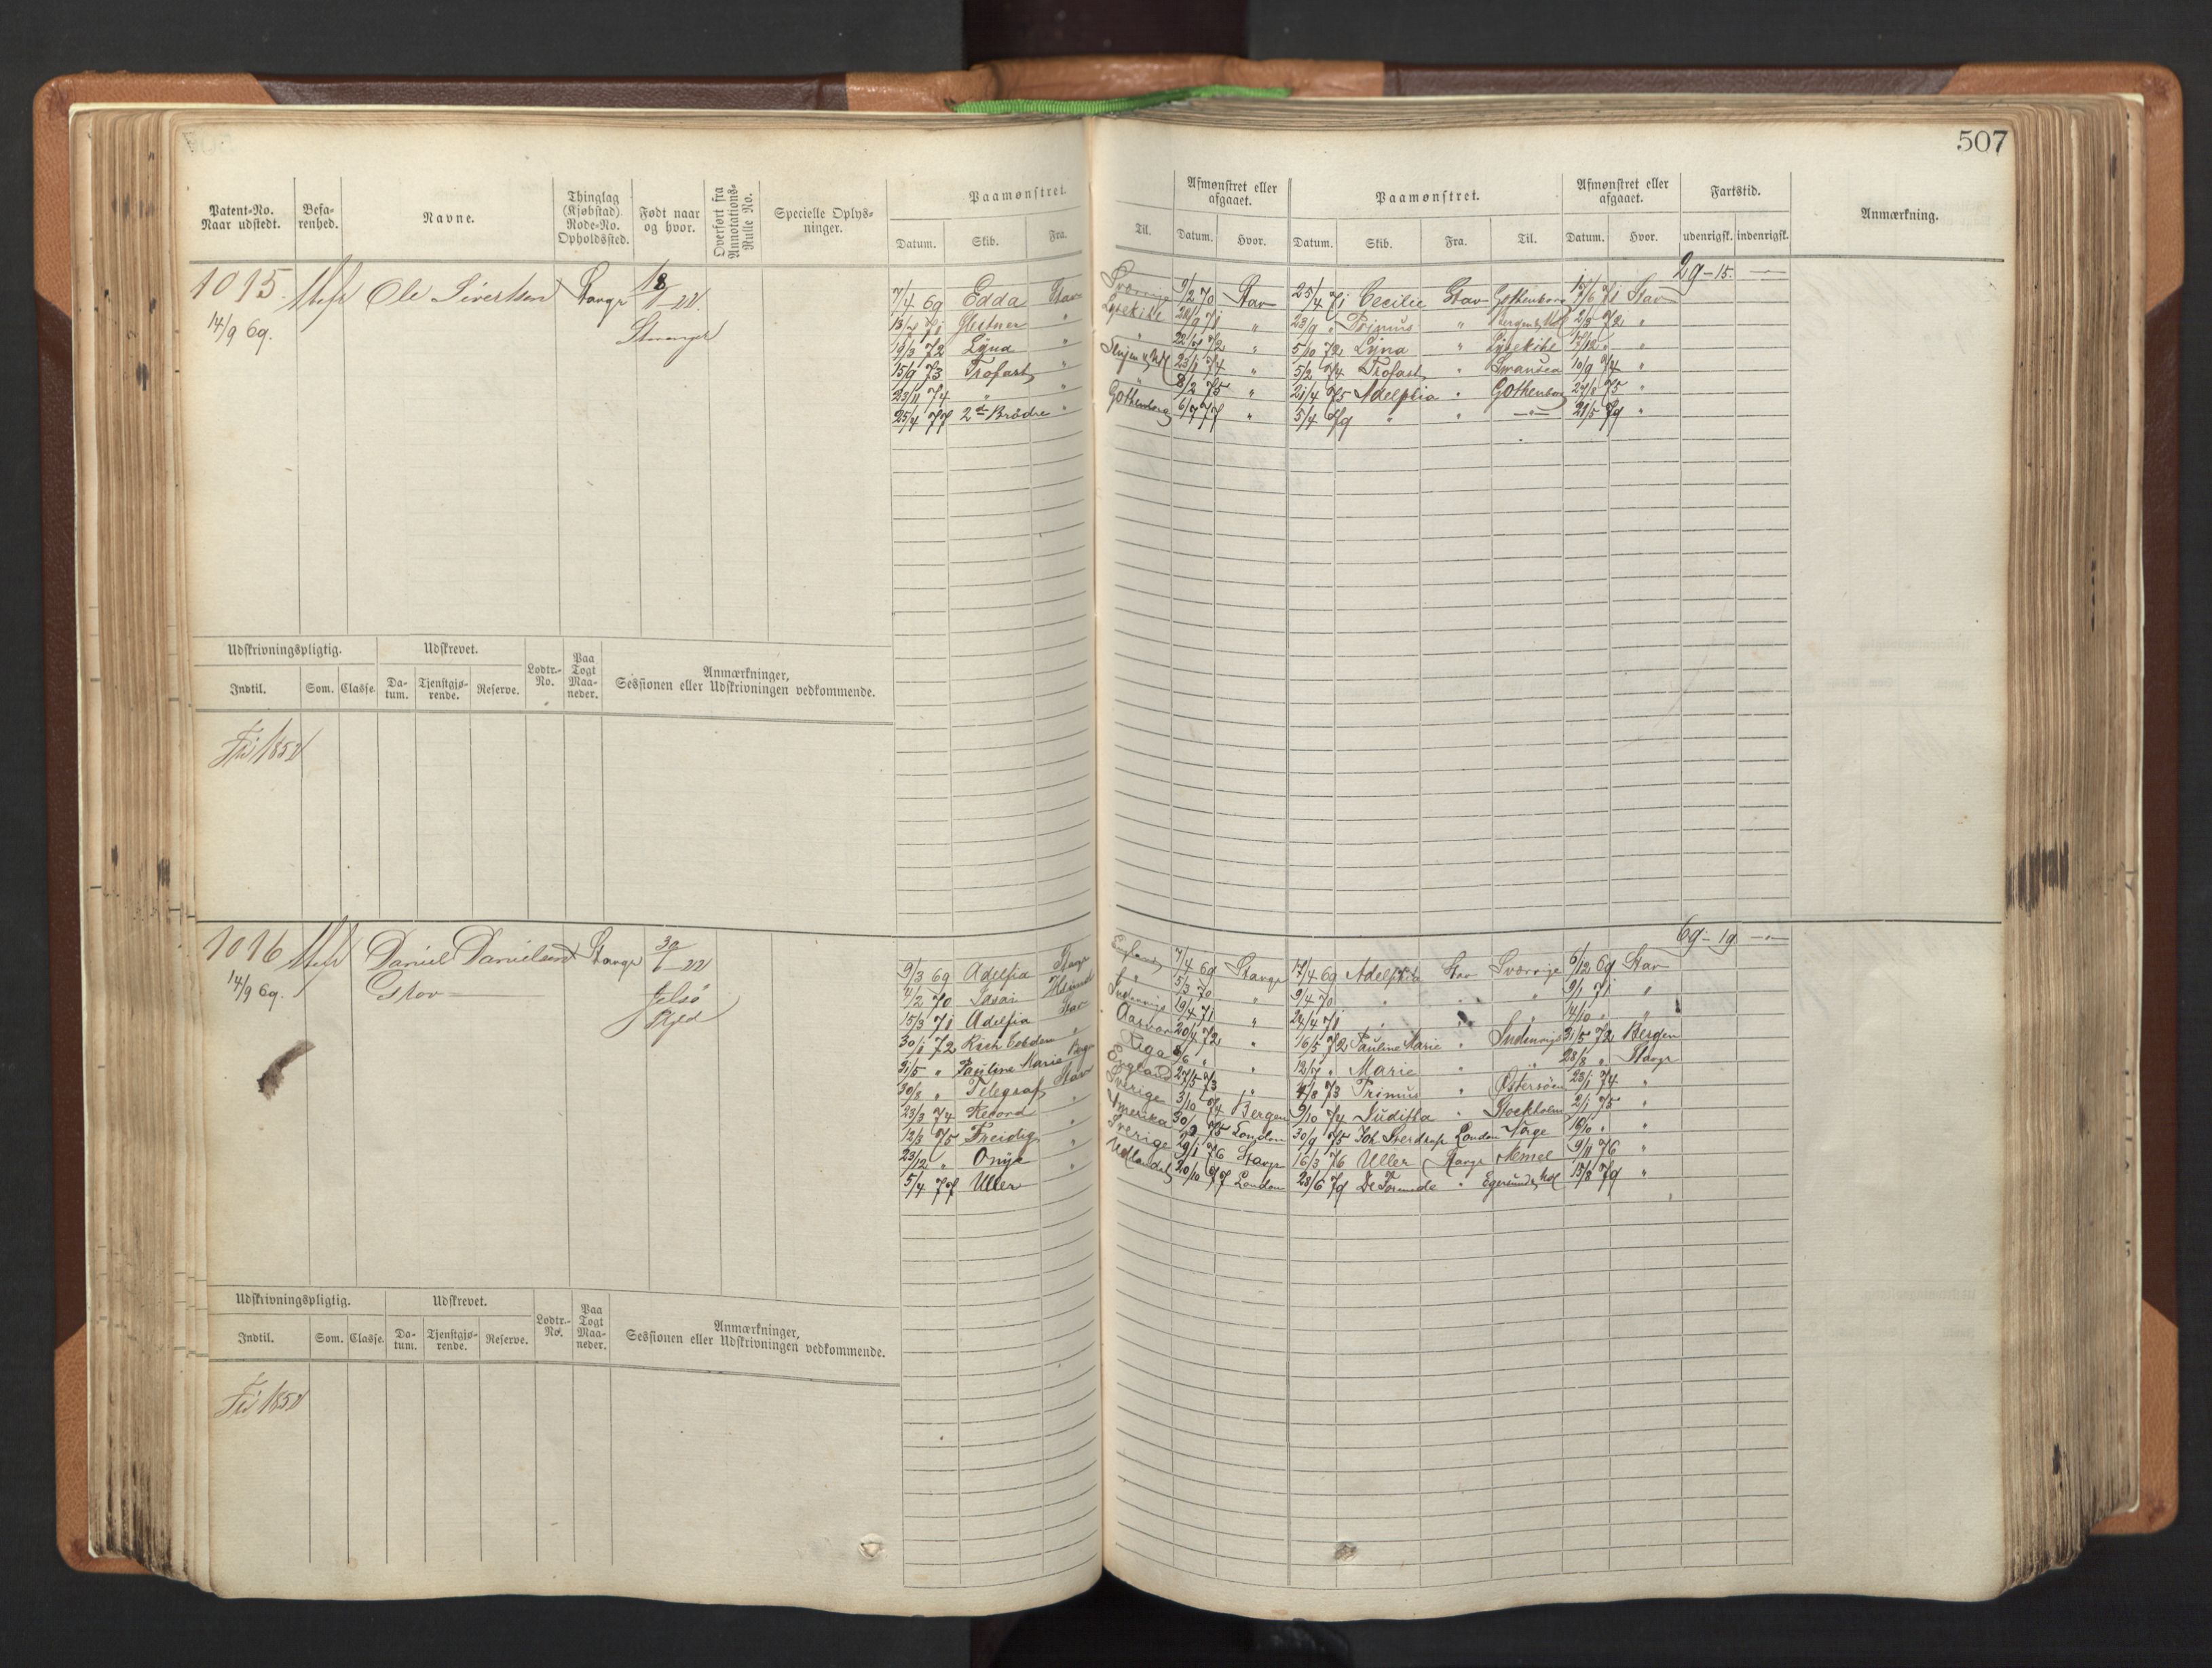 507
Patent-No. Naar udstedt.
Befa-renhed.
Navne.
Thinglag (Kjøbstad). Rode-No. Opholdssted.
Født naar og hvor.
Overført fra Annotations-Rulle No.
Specielle Oplys-ninger.
Paamønstret.
Datum. Skib. Fra. Til.
Afmønstret eller afgaaet.
Datum. Hvor.
Paamønstret.
Datum. Skib. Fra. Til.
Afmønstret eller afgaaet.
Datum. Hvor.
Fartstid.
udenrigsk. indenrigsk.
Anmærkning.
29-15.
1015. Ole Sivertsen Stavgr
14/9 69. Stavanger
7/4 69 Edda Stav 9/2 70 Stav 25/4 71 Cecilie Stav Gothenborg 15/6 71 Stav
Lysekihl 28/9 71 " 23/9 " Primus "
19/3 72 Lyna " " " 5/10 72 Lyna " Lysekihl "
15/9 73 Trofast " 23/1 74 " 5/2 74 Trofast " Swansea 10/9 74 "
23/11 74 " " " 8/2 75 " 21/4 75 Adelphia " Gothenborg 27/8 75 "
25/4 77 2de Brødre " Gothenborg 6/7 77 " 5/4 79 " " 21/5 79 "
Udskrivningspligtig.
Indtil. Som. Classe.
Udskrevet.
Da-tum. Tjenstgjø-rende. Reserve.
Lodtr.-No.
Paa Togt Maa-neder.
Anmærkninger,
Sessionen eller Udskrivningen vedkommende.
1852
69-19
1016 Daniel Danielsen Stavgr
14/9 69. Jelsø
9/3 69 Adelfia Stavgr 7/4 69 Stavgr 17/4 69 Adelphia Stav Sverrige 6/12 69 Stav
4/2 70 5/3 70 " 9/4 70 " " " 9/1 71 "
15/3 71 Adelfia Stav Indenrigs 19/4 71 " 24/4 71 " " " 14/10 " "
30/1 72 Rich Cobden " Aasvær 20/4 72 " 16/5 72 Pauline Marie " Indenrigs 31/5 72 Bergen
31/5 " Pauline Marie Bergen Riga 8/6 " 12/7 " Marie " " 28/8 " Stavgr
30/8 " Telegraf Stavr England 27/5 73 " 4/8 73 Primus " Østersøen 23/1 74 "
23/3 74 Record " Sverigen 3/10 74 Bergen 9/10 74 Juditha " Stockholm 2/1 75 "
12/3 75 Freidig " Amerika 30/9 75 London 30/9 75 Joh Sverdrup London Norge 16/10 " "
23/12 " Onga " Sverige 29/1 76 Stavgr 16/3 76 Uller Stavgr Memel 9/11 76 "
5/4 77 Uller " Udlandet 20/10 77 London 28/6 79 De Forende " 13/8 79 "
Udskrivningspligtig.
Indtil. Som. Classe.
Udskrevet.
Da-tum. Tjenstgjø-rende. Reserve.
Lodtr.-No.
Paa Togt Maa-neder.
Anmærkninger,
Sessionen eller Udskrivningen vedkommende.
1852